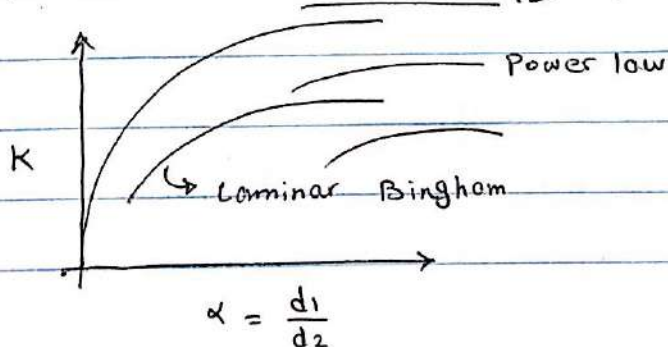 Power law
K
↳ Laminar Bingham
α = d1/d2